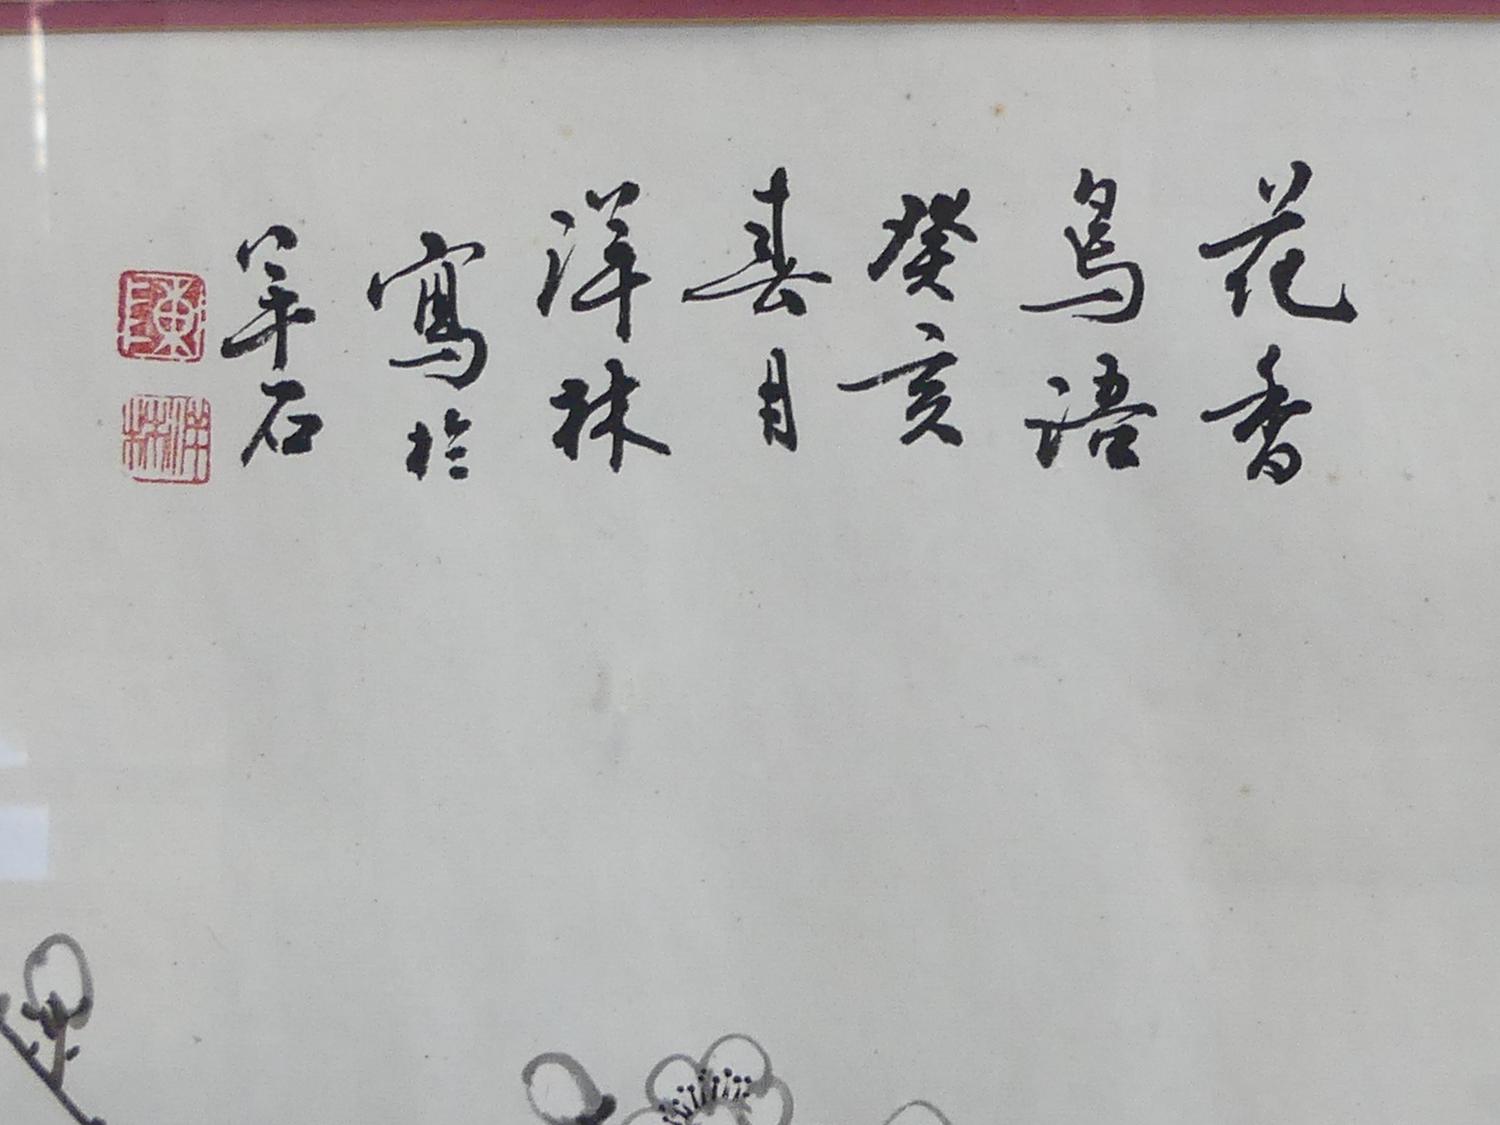 花香
鳥語
癸亥
春月
洋林
寫於
羊石
陳